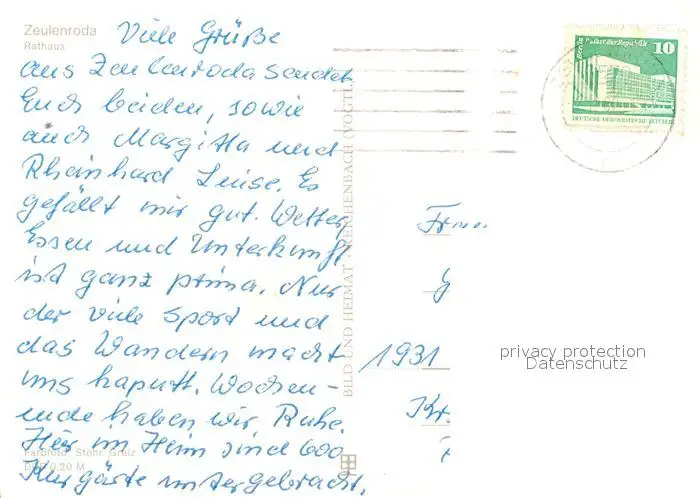 Zeulenroda
Rathaus
Viele Grüße
aus Zeulenroda sendet
Euch beiden, sowie
auch Margitta und
Rheinhard Luise. Es
gefällt mir gut. Wetter,
Essen und Unterkunft
ist ganz prima. Nur
der viele Sport und
das Wandern macht
uns kaputt. Wochen-
ende haben wir Ruhe.
Hier im Heim sind 600
Kurgäste untergebracht.
Farbfoto Stöhr, Greiz
0,20 M
BILD UND HEIMAT REICHENBACH (VOGTL)
Berlin Palast der Republik
10
DEUTSCHE DEMOKRATISCHE REPUBLIK
1931
privacy protection
Datenschutz